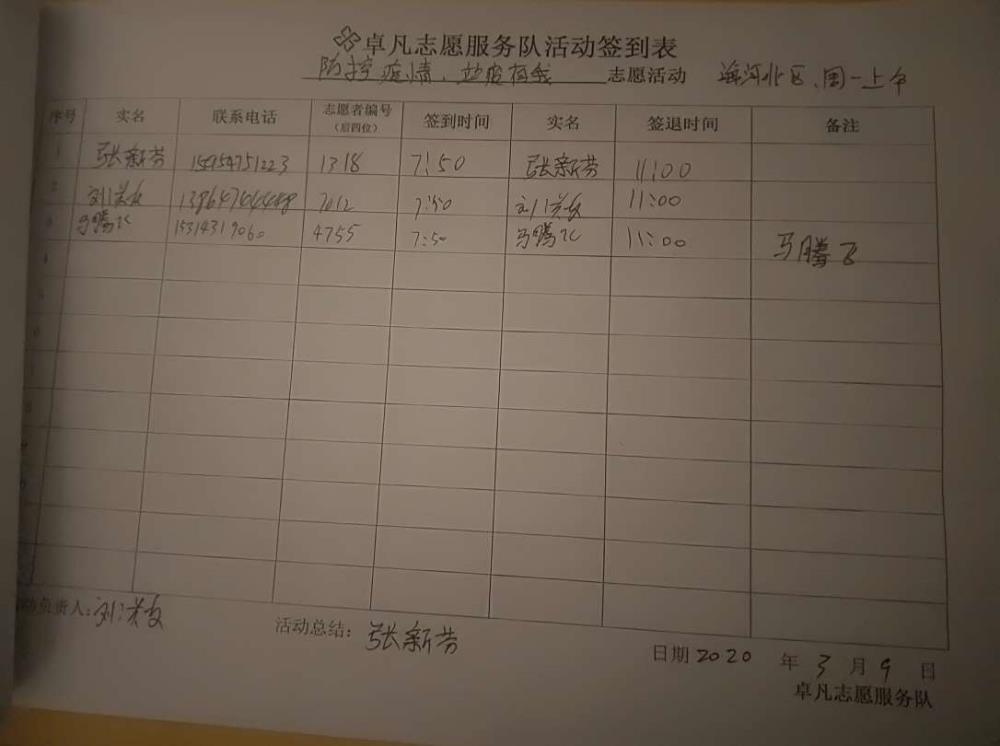 卓凡志愿服务队活动签到表
防控疫情，战疫有我 志愿活动 海河北区、周一上午
序号 实名 联系电话 志愿者编号（后四位） 签到时间 实名 签退时间 备注
1 张新芬 15954751223 1318 7:50 张新芬 11:00
2 刘洪友 13964744488 7012 7:50 刘洪友 11:00
3 马腾飞 15314319060 4755 7:50 马腾飞 11:00 马腾飞
4
5
6
7
8
负责人：刘洪友
活动总结：张新芬
日期 2020 年 3 月 9 日
卓凡志愿服务队